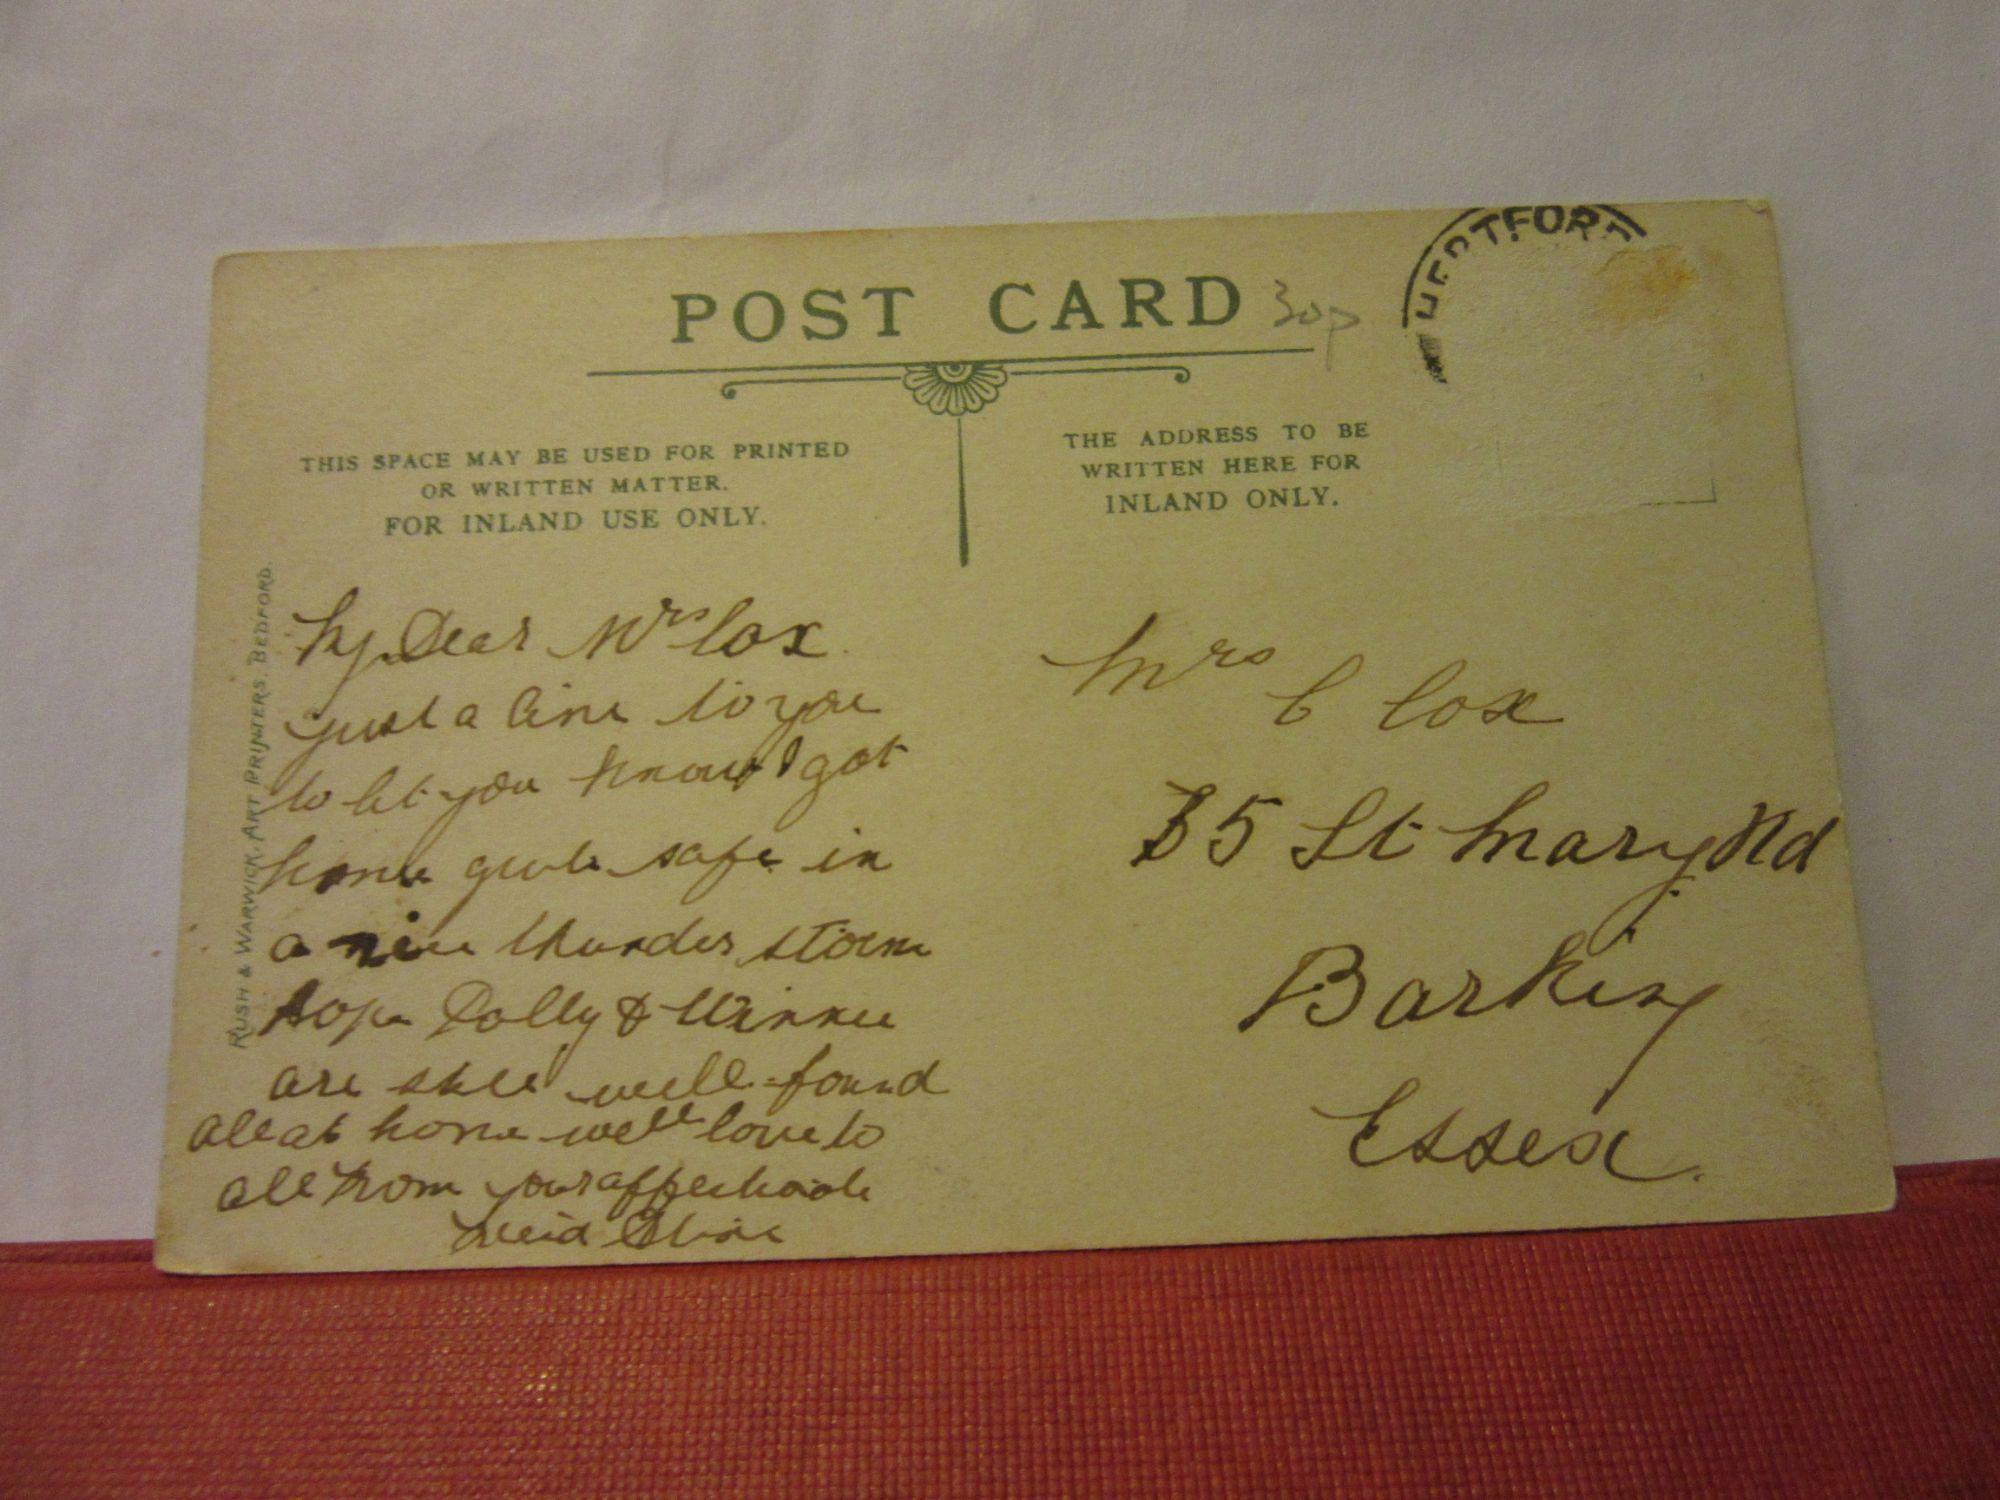 HERTFORD
POST CARD 30p
THIS SPACE MAY BE USED FOR PRINTED
OR WRITTEN MATTER.
FOR INLAND USE ONLY.
THE ADDRESS TO BE
WRITTEN HERE FOR
INLAND ONLY.
RUSH & WARWICK, ART PRINTERS, BEDFORD.
My Dear Mrs Cox
just a line to you
to let you know I got
home quite safe in
a nice thunder storm
hope Dolly & Winnie
are still well found
all at home well love to
all from your affectionate
Elsie
Mrs C Cox
35 St Mary Rd
Barking
Essex.